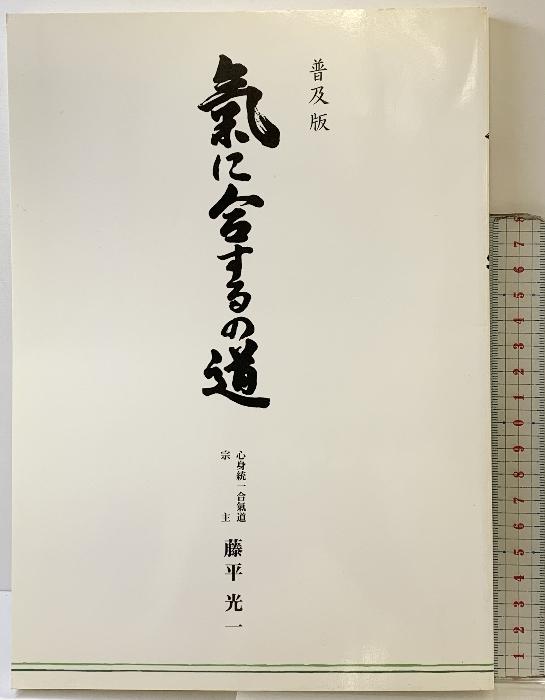 普及版
氣に合するの道
心身統一合氣道
宗主
藤平光一
8 7 6 5 4 3 2 1 0 9 8 7 6 5 4 3 2 1